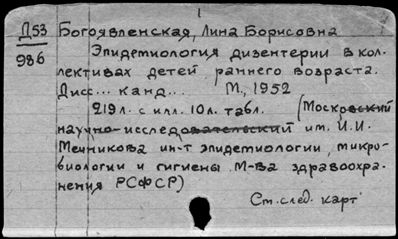 1
Д53 Богоявленская, Лина Борисовна
986 Эпидемиология дизентерии в кол-
лективах детей раннего возраста.
Дисс... канд... М., 1952
219 л. с илл. 10 л. табл. (Московский
научно-исследовательский им. И.И.
Мечникова ин-т эпидемиологии, микро-
биологии и гигиены М-ва здравоохра-
нения РСФСР)
См. след. карт